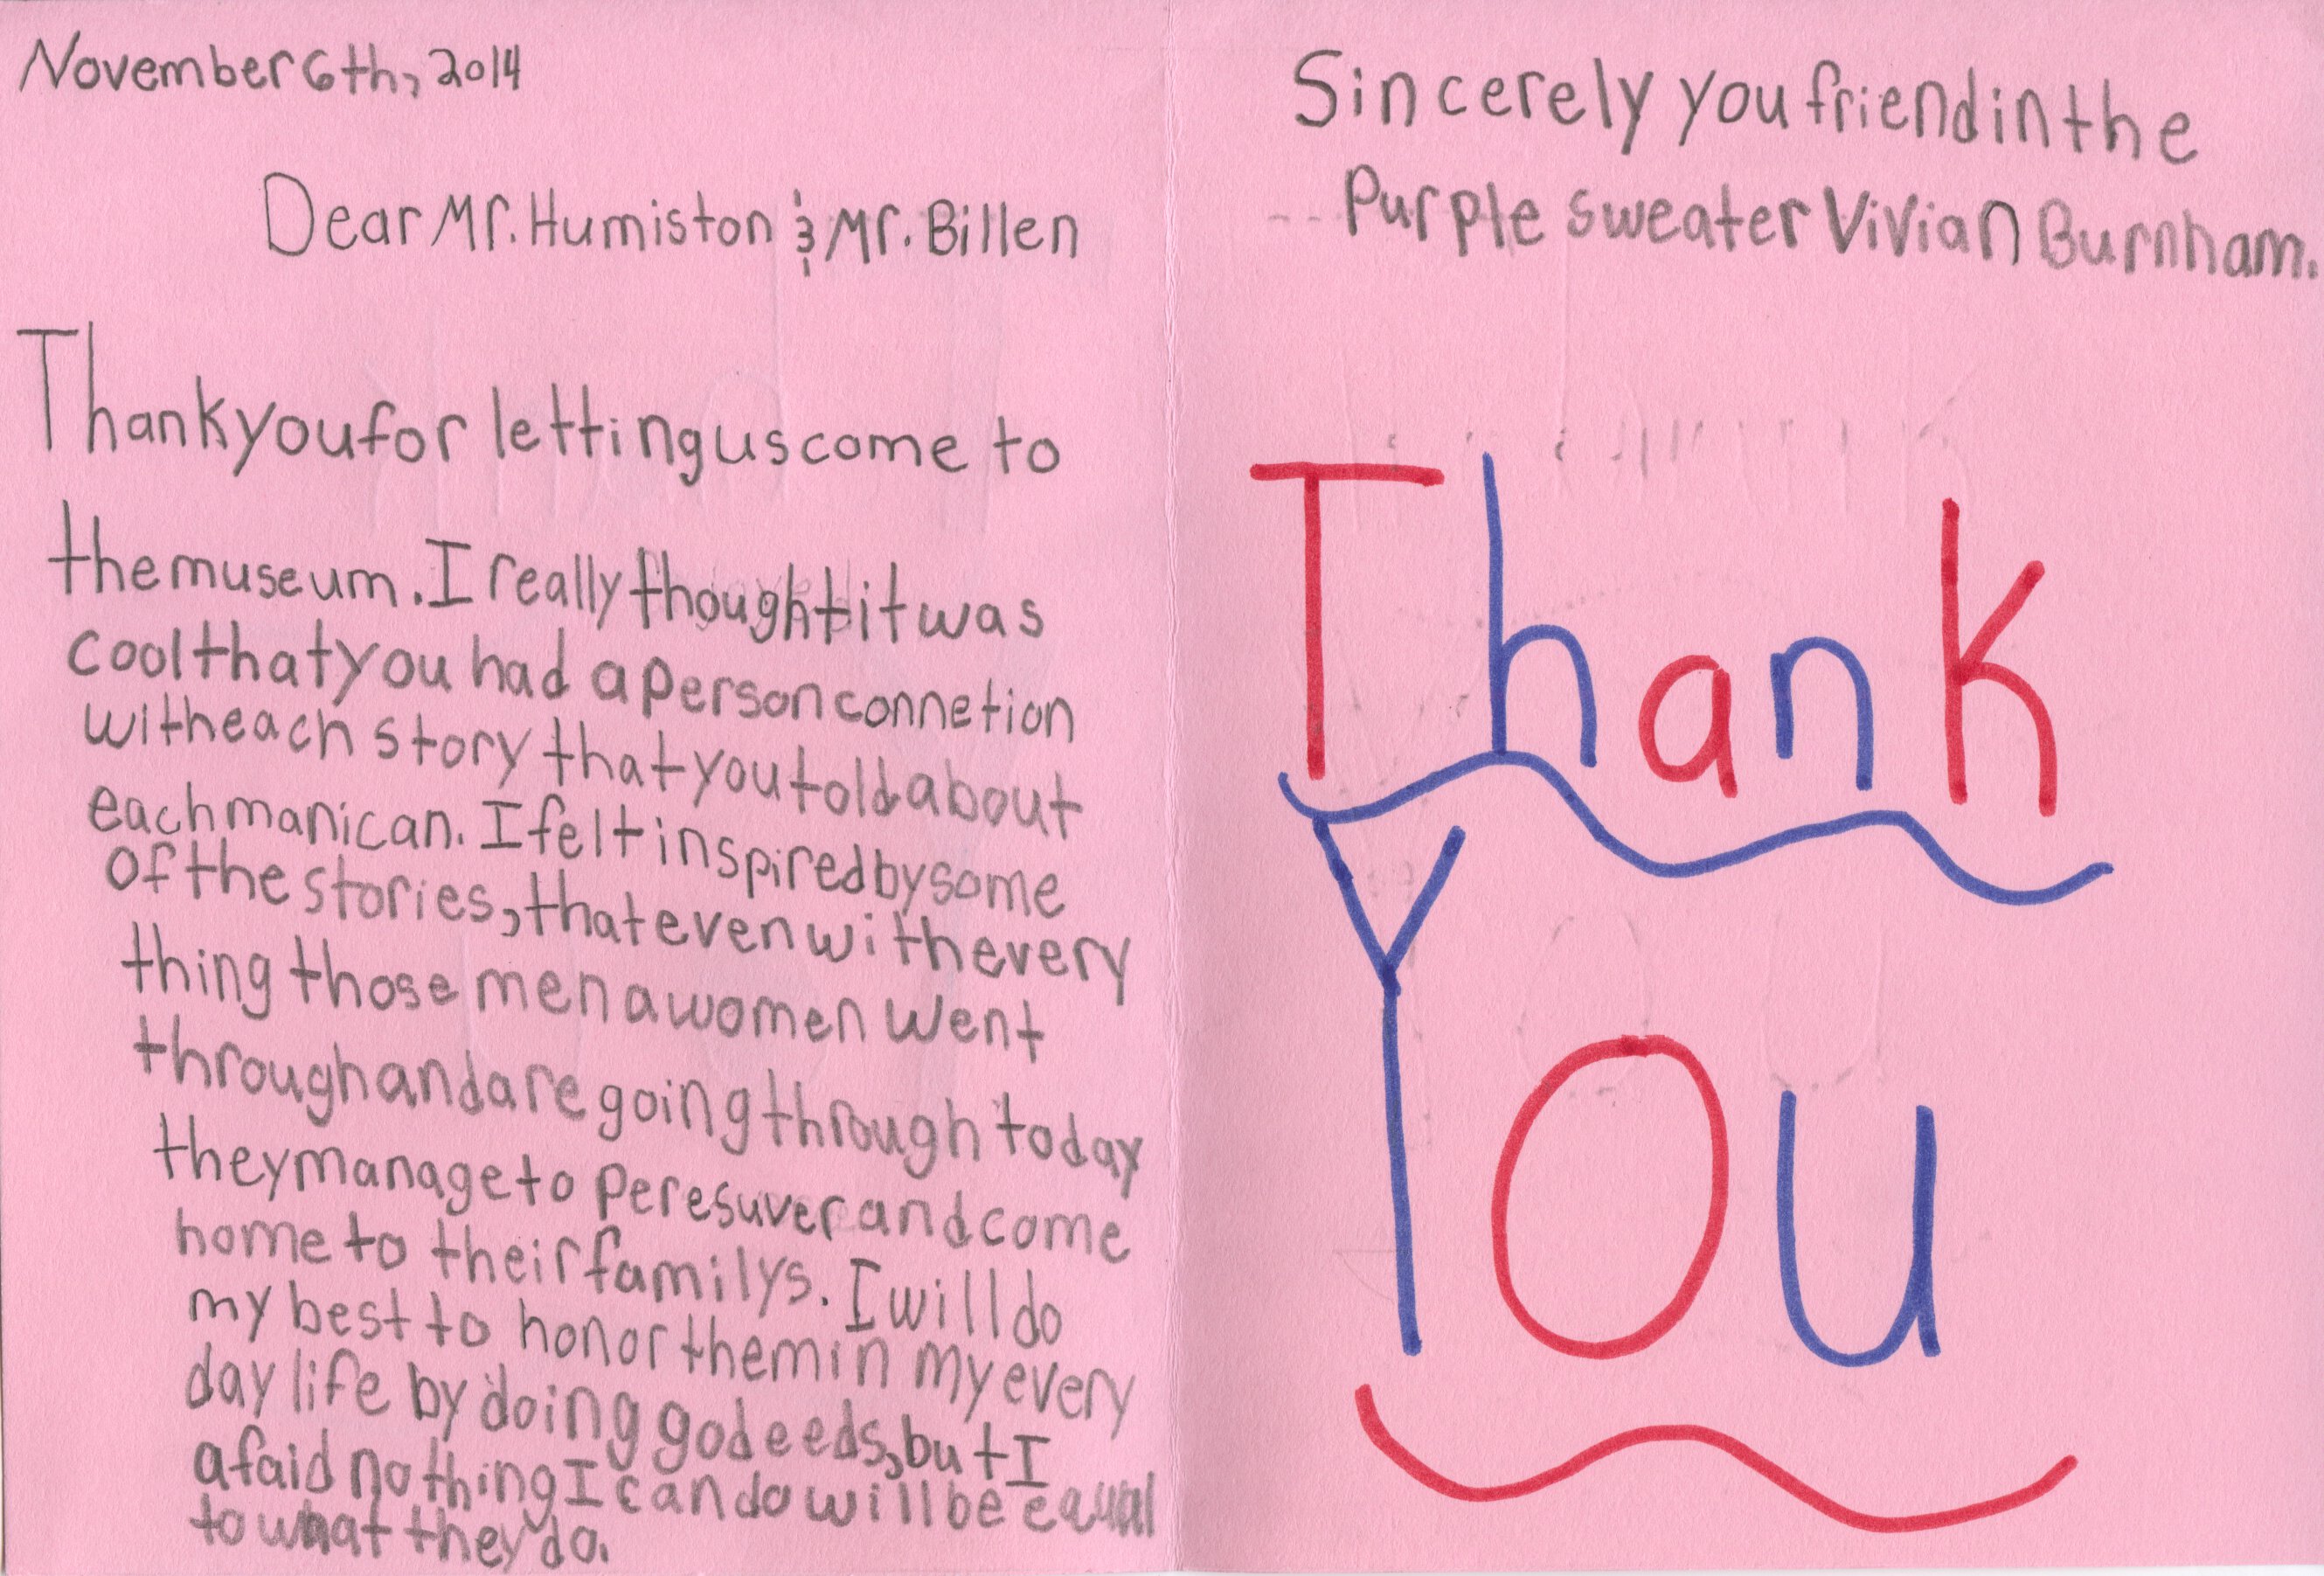 November 6th, 2014
Dear Mr. Humiston & Mr. Billen
Thank you for letting us come to
the museum. I really thought it was
cool that you had a person connetion
with each story that you told about
each manican. I felt inspired by some
of the stories, that even with every
thing those men a women went
through and are going through today
they manage to peresuver and come
home to their familys. I will do
my best to honor them in my every
day life by doing godeeds, but I
afaid nothing I can do will be equal
to what they do.
Sincerely you friend in the
Purple sweater Vivian Burnham.
Thank
You